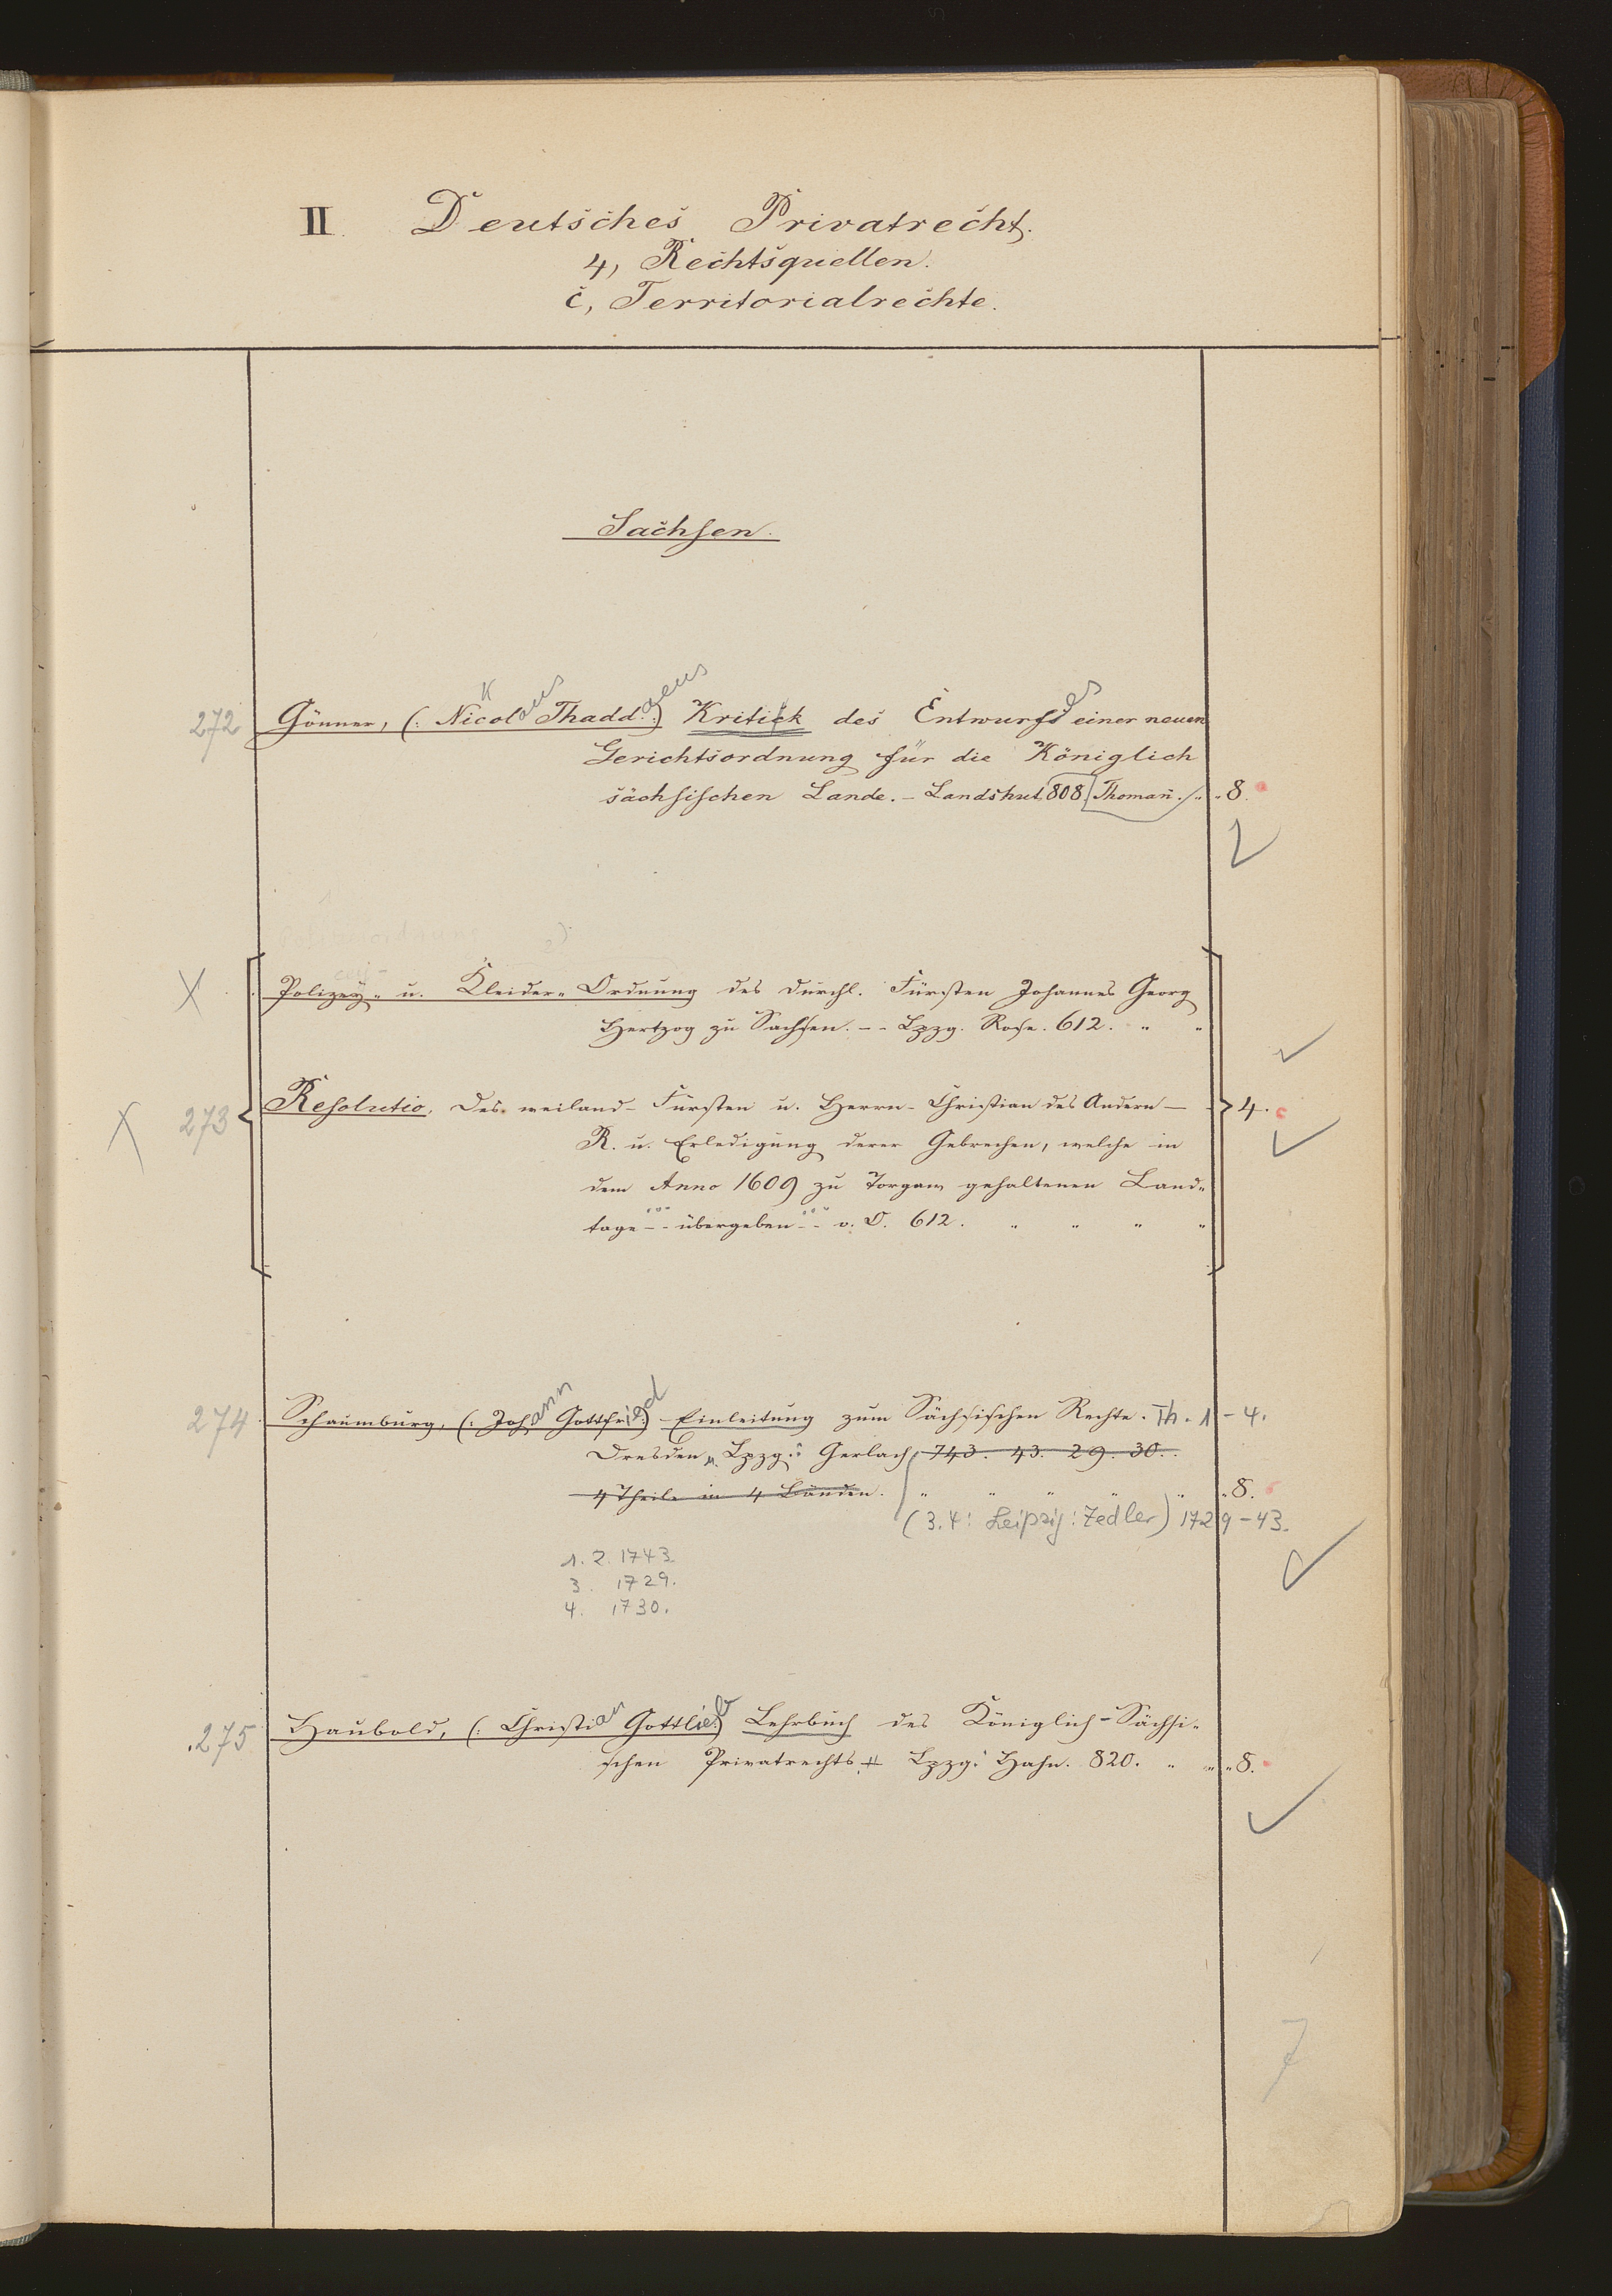 II. Deutsches Privatrecht.
4, Rechtsquellen.
c, Territorialrechte.
Sachsen.
272 Gönner, (: Nicolaus Thaddaeus :) Kritick des Entwurfs einer neuen
Gerichtsordnung für die Königlich
sächsischen Lande. – Landshut 808 Thomañ. 8.
Polizey- u. Kleider-Ordnung des durchl. Fürsten Johannes Georg
Hertzog zu Sachsen. – Lpzg. Rose. 612. " "
273 Resolutio. Des weiland – Fürsten u. Herrn – Christian des Andern – 4.
R. u. Erledigung derer Gebrechen, welche in
dem Anno 1609 zu Torgaw gehaltenen Land-
tage – übergeben – o. O. 612. " " " "
274. Schaumburg, (: Johann Gottfried :) Einleitung zum Sächsischen Rechte. Th. 1 – 4.
Dresden u. Lpzg: Gerlach 743. 43. 29. 30.
4 Theile in 4 Bänden. " " " " " 8.
(3.4: Leipzig: Zedler) 1729–43.
1. 2. 1743.
3. 1729.
4. 1730.
275 Haubold, (: Christian Gottlieb :) Lehrbuch des Königlich-Sächsi-
schen Privatrechts. Lpzg: Hahn. 820. " " 8.
7